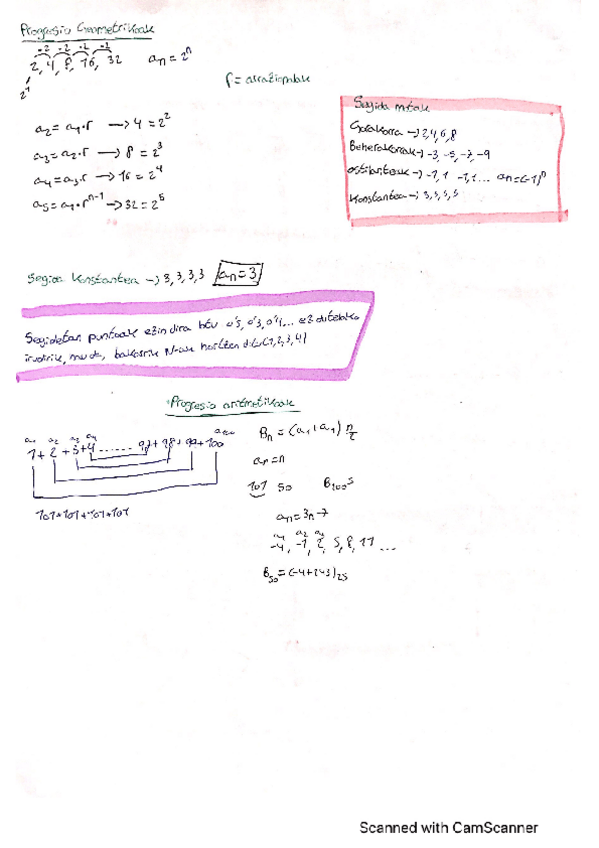 Progresio Geometrikoak
·2 ·2 ·2 ·2
2, 4, 8, 16, 32 an = 2^n
2^1
r = arrazoia
a2 = a1·r → 4 = 2^2
a3 = a2·r → 8 = 2^3
a4 = a3·r → 16 = 2^4
a5 = a1·r^n-1 → 32 = 2^5
Segida motak
Gorakorra → 2,4,6,8
Beherakorrak → -3, -5, -7, -9
→ -1, 1 -1, 1... an = (-1)^n
Konstantea → 3, 3, 3, 3
Segida Konstantea → 3, 3, 3, 3 an = 3
Segidetan puntoak ezin dira 0'5, 0'3, 0'4... ez dutelako
irudirik, bakarrik N-oak hartzen ditu (1, 2, 3, 4)
Progresio aritmetikoak
a1 a2 a3 a4 a100
1 + 2 + 3 + 4 ...... 97 + 98 + 99 + 100
101 + 101 + 101 + 101
Bn = (a1 + a1) n/2
an = n
101 50
an = 3n - 7
a1 a2 a3
-4, -1, 2, 5, 8, 11 ...
B50 = (-4 + 143) 25
Scanned with CamScanner